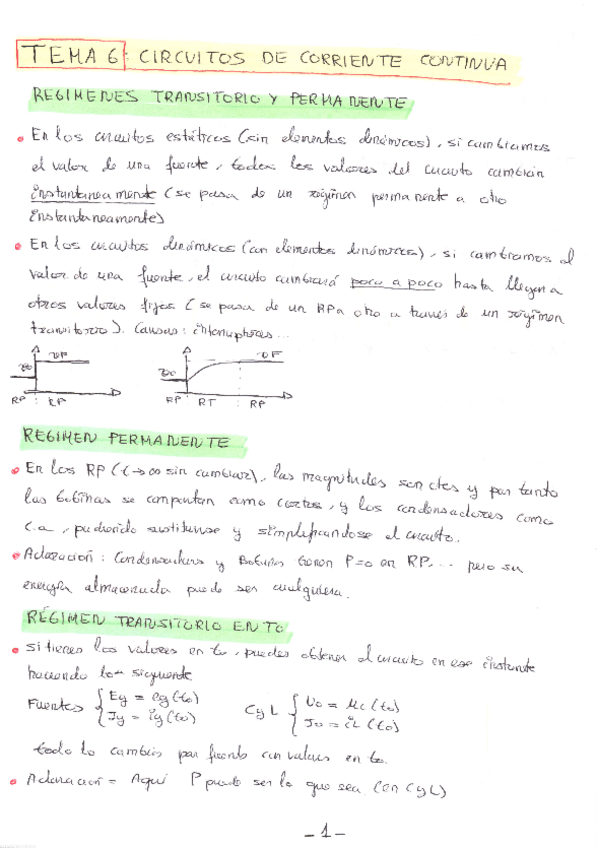 TEMA 6: CIRCUITOS DE CORRIENTE CONTINUA
REGIMENES TRANSITORIO Y PERMANENTE
• En los circuitos estáticos (sin elementos dinámicos), si cambiamos
el valor de una fuente, todos los valores del circuito cambian
instantaneamente (se pasa de un régimen permanente a otro
instantaneamente)
• En los circuitos dinámicos (con elementos dinámicos), si cambiamos el
valor de una fuente, el circuito cambiará poco a poco hasta llegar a
otros valores fijos (se pasa de un RP a otro a través de un régimen
transitorio). Causas: interruptores...
RP : RP
RP RT RP
REGIMEN PERMANENTE
• En los RP (t→∞ sin cambiar), las magnitudes son ctes y por tanto
las bobinas se comportan como cortos, y los condensadores como
c.a, pudiendo sustituirse y simplificandose el circuito.
• Aclaración: Condensadores y Bobinas tienen P=0 en RP... pero su
energía almacenada puede ser cualquiera.
RÉGIMEN TRANSITORIO EN TO
• si tienes los valores en to, puedes obtener el circuito en ese instante
haciendo lo siguiente
Fuentes { Eg = eg(to) C y L { Uo = uc(to)
Jg = ig(to) Jo = iL(to)
todo lo cambias por fuente con valores en to.
• Aclaración = Aquí P puede ser lo que sea. (en C y L)
- 1 -